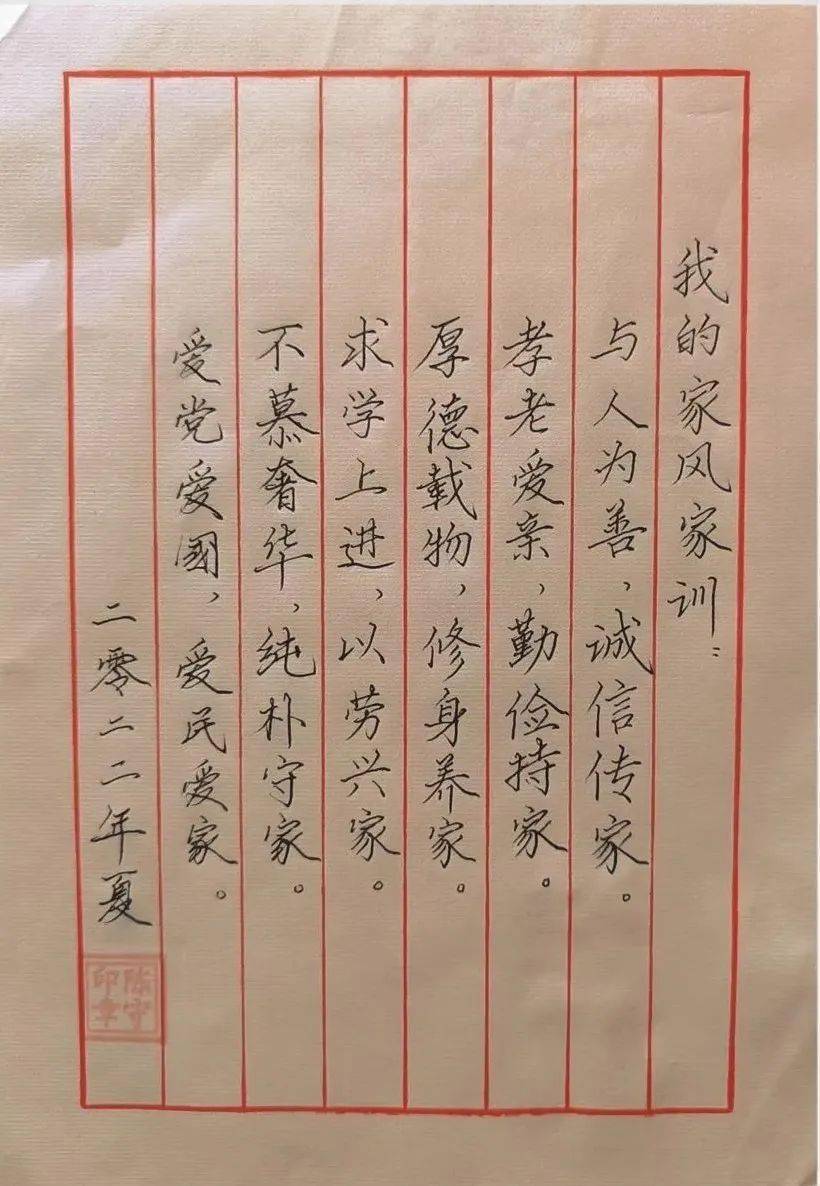 我的家风家训：
与人为善，诚信传家。
孝老爱亲，勤俭持家。
厚德载物，修身养家。
求学上进，以劳兴家。
不慕奢华，纯朴守家。
爱党爱國，爱民爱家。
二零二二年夏
陈守
印章